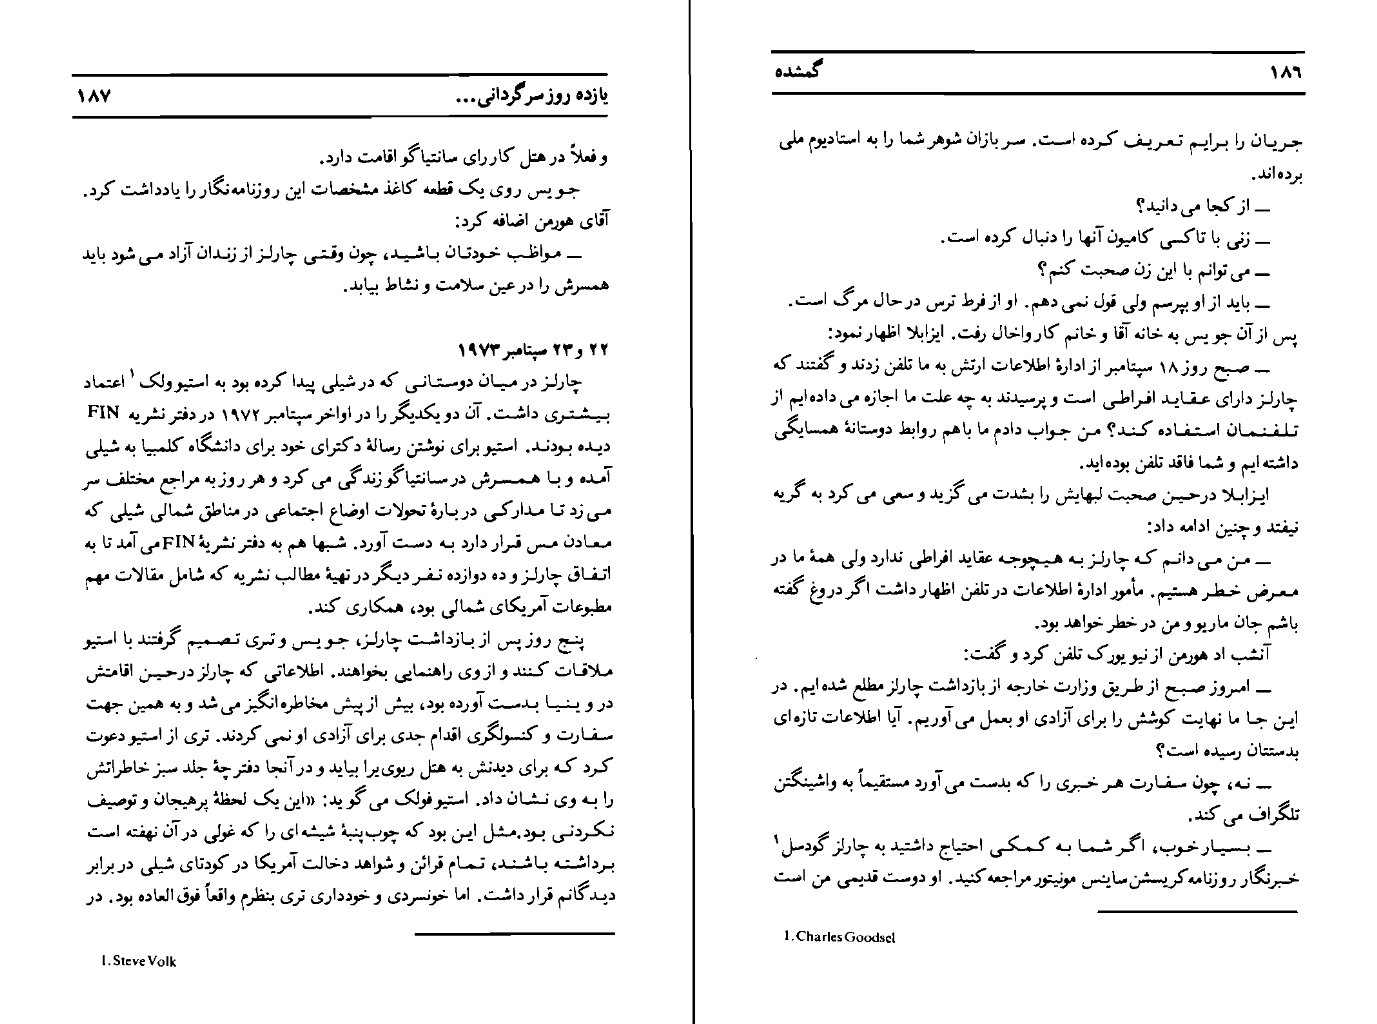 ۱۸۶ گمشده
جریان را برایم تعریف کرده است. سربازان شوهر شما را به استادیوم ملی
برده‌اند.
ــ از کجا می‌دانید؟
ــ زنی با تاکسی کامیون آنها را دنبال کرده است.
ــ می‌توانم با این زن صحبت کنم؟
ــ باید از او بپرسم ولی قول نمی‌دهم. او از فرط ترس در حال مرگ است.
پس از آن جویس به خانه آقا و خانم کارواخال رفت. ایزابلا اظهار نمود:
ــ صبح روز ۱۸ سپتامبر از ادارهٔ اطلاعات ارتش به ما تلفن زدند و گفتند که
چارلز دارای عقاید افراطی است و پرسیدند به چه علت ما اجازه می‌داده‌ایم از
تلفنمان استفاده کند؟ من جواب دادم ما باهم روابط دوستانهٔ همسایگی
داشته‌ایم و شما فاقد تلفن بوده‌اید.
ایزابلا درحین صحبت لبهایش را بشدت می‌گزید و سعی می‌کرد به گریه
نیفتد و چنین ادامه داد:
ــ من می‌دانم که چارلز به هیچوجه عقاید افراطی ندارد ولی همهٔ ما در
معرض خطر هستیم. مأمور ادارهٔ اطلاعات در تلفن اظهار داشت اگر دروغ گفته
باشم جان ماریو و من در خطر خواهد بود.
آنشب اد هورمن از نیویورک تلفن کرد و گفت:
ــ امروز صبح از طریق وزارت خارجه از بازداشت چارلز مطلع شده‌ایم. در
این جا ما نهایت کوشش را برای آزادی او بعمل می‌آوریم. آیا اطلاعات تازه‌ای
بدستتان رسیده است؟
ــ نه، چون سفارت هر خبری را که بدست می‌آورد مستقیماً به واشینگتن
تلگراف می‌کند.
ــ بسیار خوب، اگر شما به کمکی احتیاج داشتید به چارلز گودسل۱
خبرنگار روزنامه کریسشن ساینس مونیتور مراجعه کنید. او دوست قدیمی من است
1. Charles Goodsel
یازده روز سرگردانی... ۱۸۷
و فعلاً در هتل کاررای سانتیاگو اقامت دارد.
جویس روی یک قطعه کاغذ مشخصات این روزنامه‌نگار را یادداشت کرد.
آقای هورمن اضافه کرد:
ــ مواظب خودتان باشید، چون وقتی چارلز از زندان آزاد می‌شود باید
همسرش را در عین سلامت و نشاط بیابد.
۲۲ و ۲۳ سپتامبر ۱۹۷۳
چارلز در میان دوستانی که در شیلی پیدا کرده بود به استیو ولک۱ اعتماد
بیشتری داشت. آن دو یکدیگر را در اواخر سپتامبر ۱۹۷۲ در دفتر نشریه FIN
دیده بودند. استیو برای نوشتن رسالهٔ دکترای خود برای دانشگاه کلمبیا به شیلی
آمده و با همسرش در سانتیاگو زندگی می‌کرد و هر روز به مراجع مختلف سر
می‌زد تا مدارکی دربارهٔ تحولات اوضاع اجتماعی در مناطق شمالی شیلی که
معادن مس قرار دارد به دست آورد. شبها هم به دفتر نشریهٔ FIN می‌آمد تا به
اتفاق چارلز و ده دوازده نفر دیگر در تهیهٔ مطالب نشریه که شامل مقالات مهم
مطبوعات آمریکای شمالی بود، همکاری کند.
پنج روز پس از بازداشت چارلز، جویس و تری تصمیم گرفتند با استیو
ملاقات کنند و از وی راهنمایی بخواهند. اطلاعاتی که چارلز درحین اقامتش
در وینیا بدست آورده بود، بیش از پیش مخاطره‌انگیز می‌شد و به همین جهت
سفارت و کنسولگری اقدام جدی برای آزادی او نمی‌کردند. تری از استیو دعوت
کرد که برای دیدنش به هتل ریوی‌یرا بیاید و در آنجا دفترچهٔ جلد سبز خاطراتش
را به وی نشان داد. استیو فولک می‌گوید: «این یک لحظهٔ پرهیجان و توصیف
نکردنی بود.مثل این بود که چوب‌پنبهٔ شیشه‌ای را که غولی در آن نهفته است
برداشته باشند، تمام قرائن و شواهد دخالت آمریکا در کودتای شیلی در برابر
دیدگانم قرار داشت. اما خونسردی و خودداری تری بنظرم واقعاً فوق‌العاده بود. در
1. Steve Volk